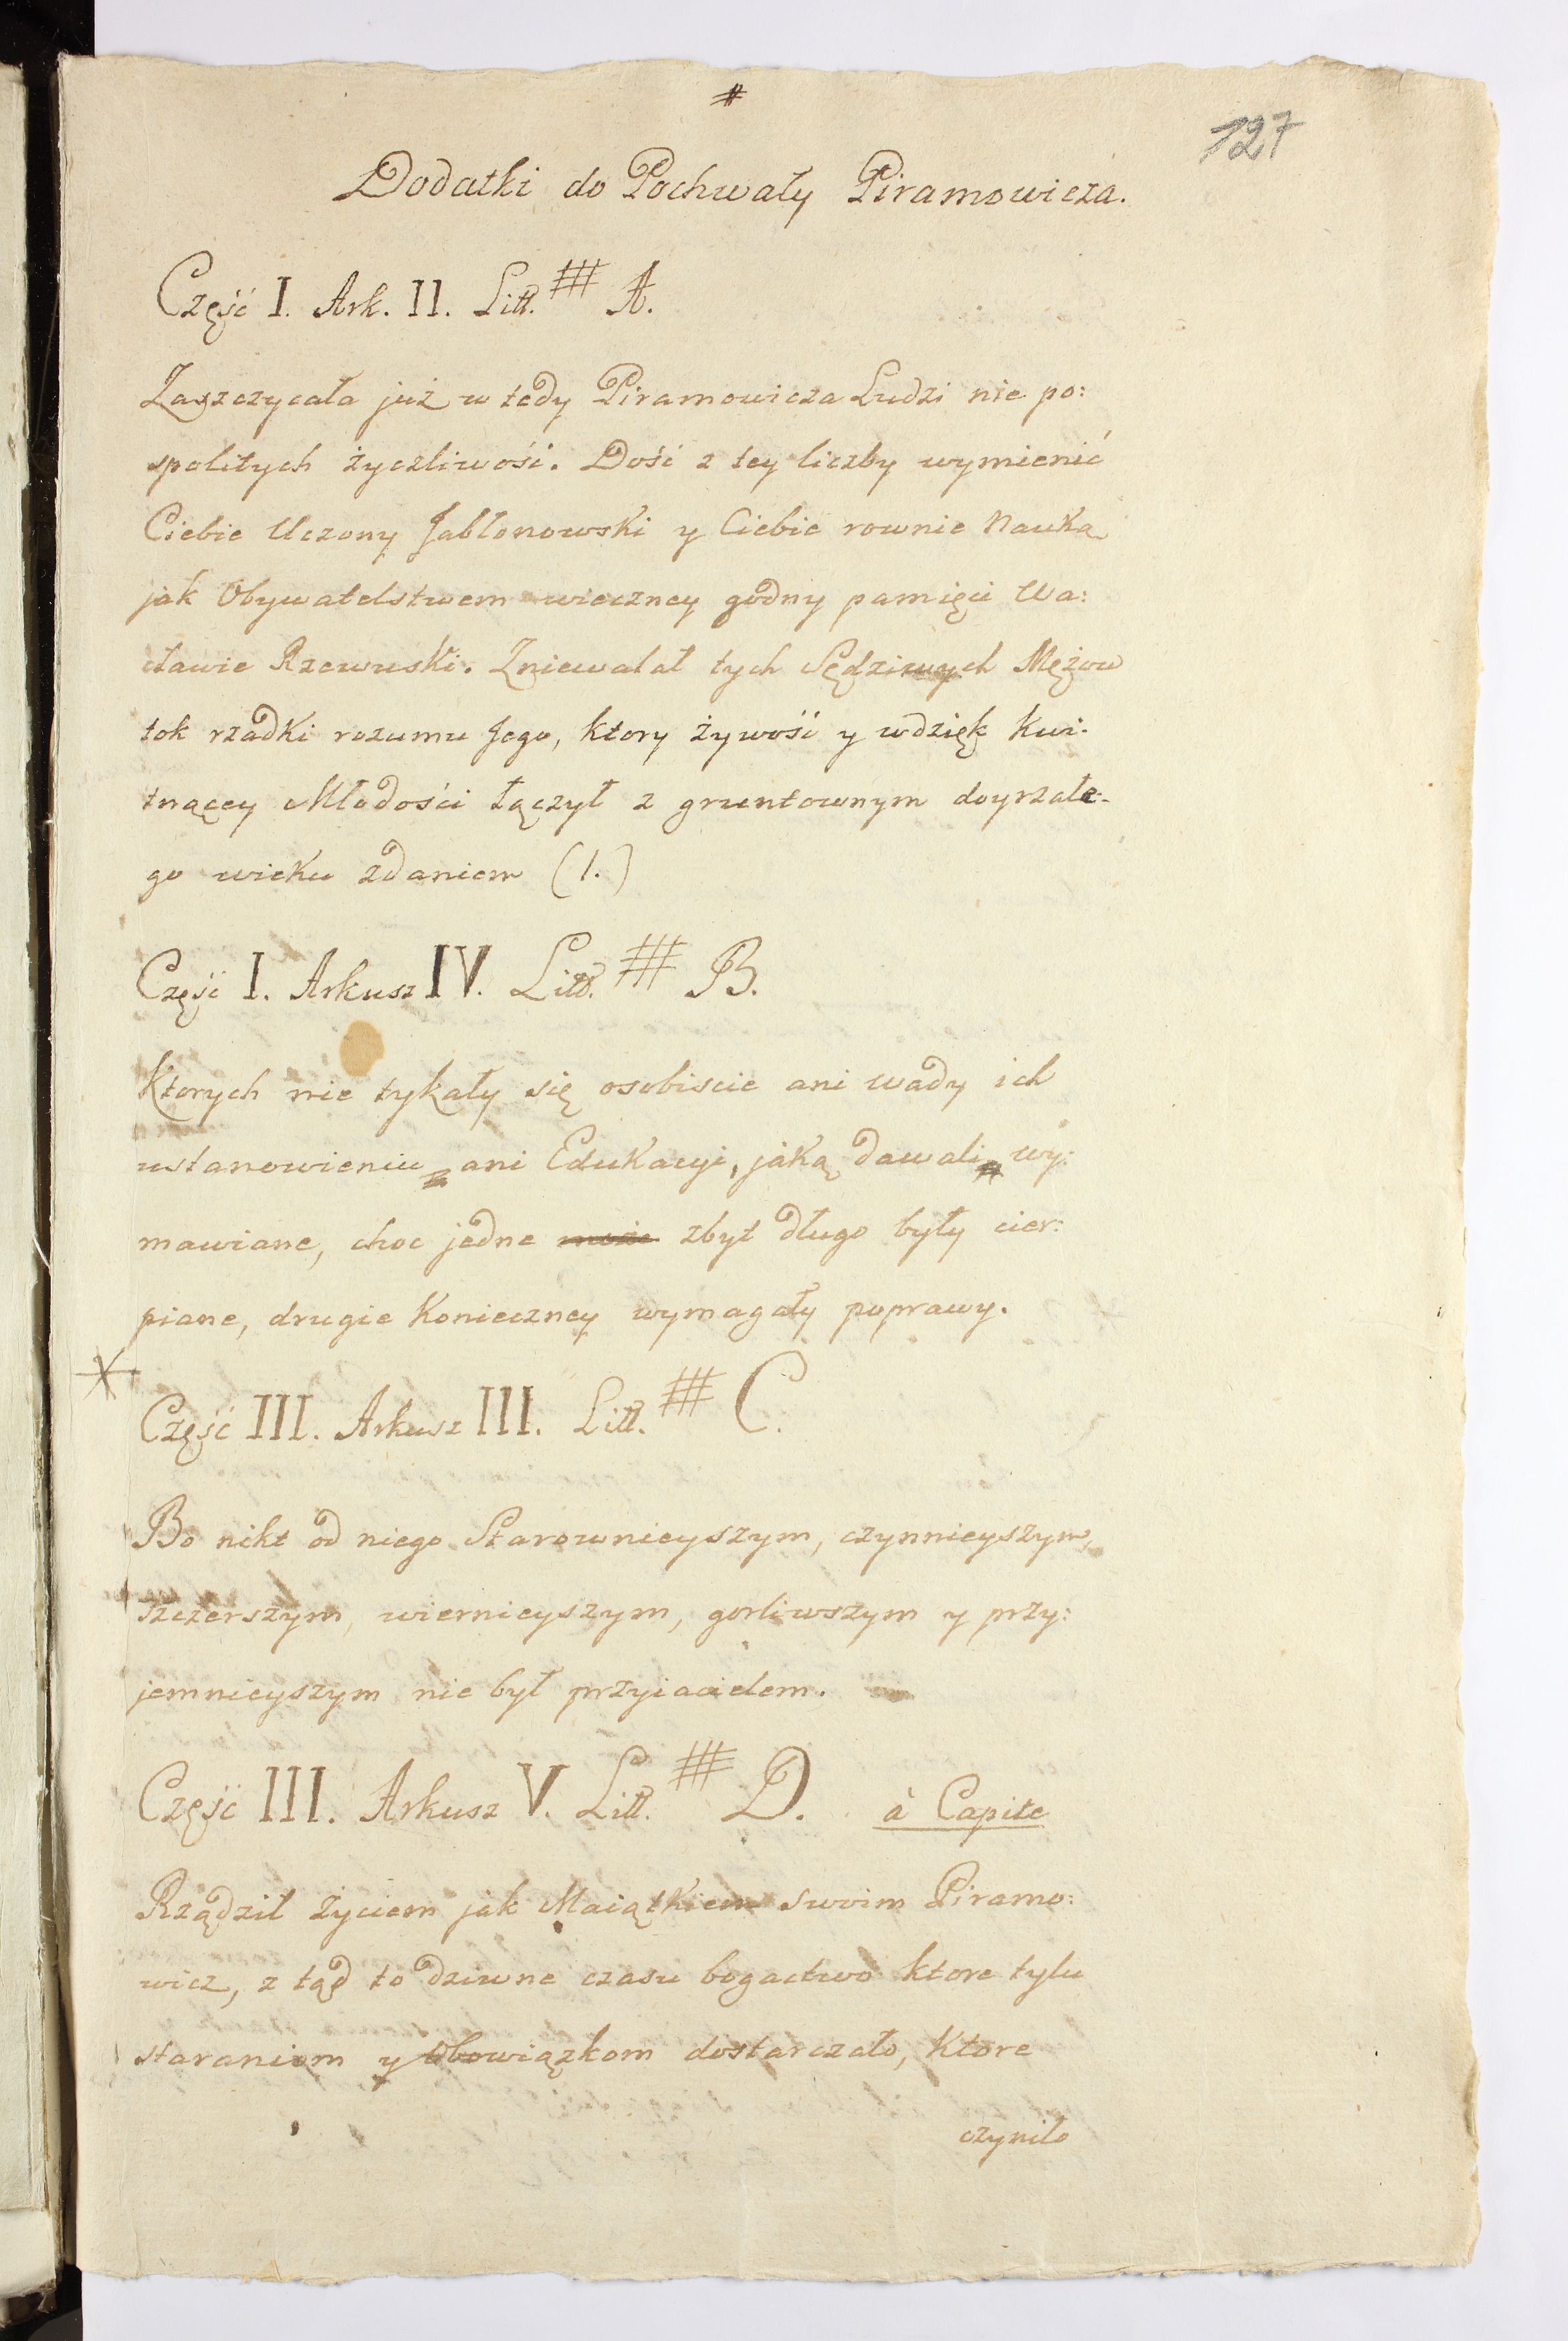 #
127
Dodatki do Pochwały Piramowicza.
Część I. Ark. II. Litt. # A.
Zaszczycała już w tedy Piramowicza Ludzi nie po:
spolitych życzliwość. Dość z tey liczby wymienić
Ciebie Uczony Jabłonowski y Ciebie rownie Nauką
jak Obywatelstwem wieczney godny pamięci Wa:
cławie Rzewuski. Zniewalał tych Sędziwych Mężow
tok rzadki rozumu Jego, ktory żywość y wdzięk kwi-
tnącey Młodości łączył z gruntownym doyrzałe-
go wieku zdaniem (1.)
Część I. Arkusz IV. Litt. # B.
Ktorych nie tykały się osobiscie ani wady ich
ustanowieniu ani Edukacyi, jaką dawali wy:
mawiane, choc jedne może zbyt długo były cier:
piane, drugie Konieczney wymagały poprawy.
Część III. Arkusz III. Litt. # C.
Bo nikt od niego Starownieyszym, czynnieyszym,
szczerszym, wiernieyszym, gorliwszym y przy:
jemnieyszym nie był przyiacielem.
Część III. Arkusz V. Litt. # D. à Capite
Rządził życiem jak Maiątkiem swoim Piramo:
wicz, z tąd to dziwne czasu bogactwo ktore tylu
staraniom y Obowiązkom dostarczało, Ktore
czyniło